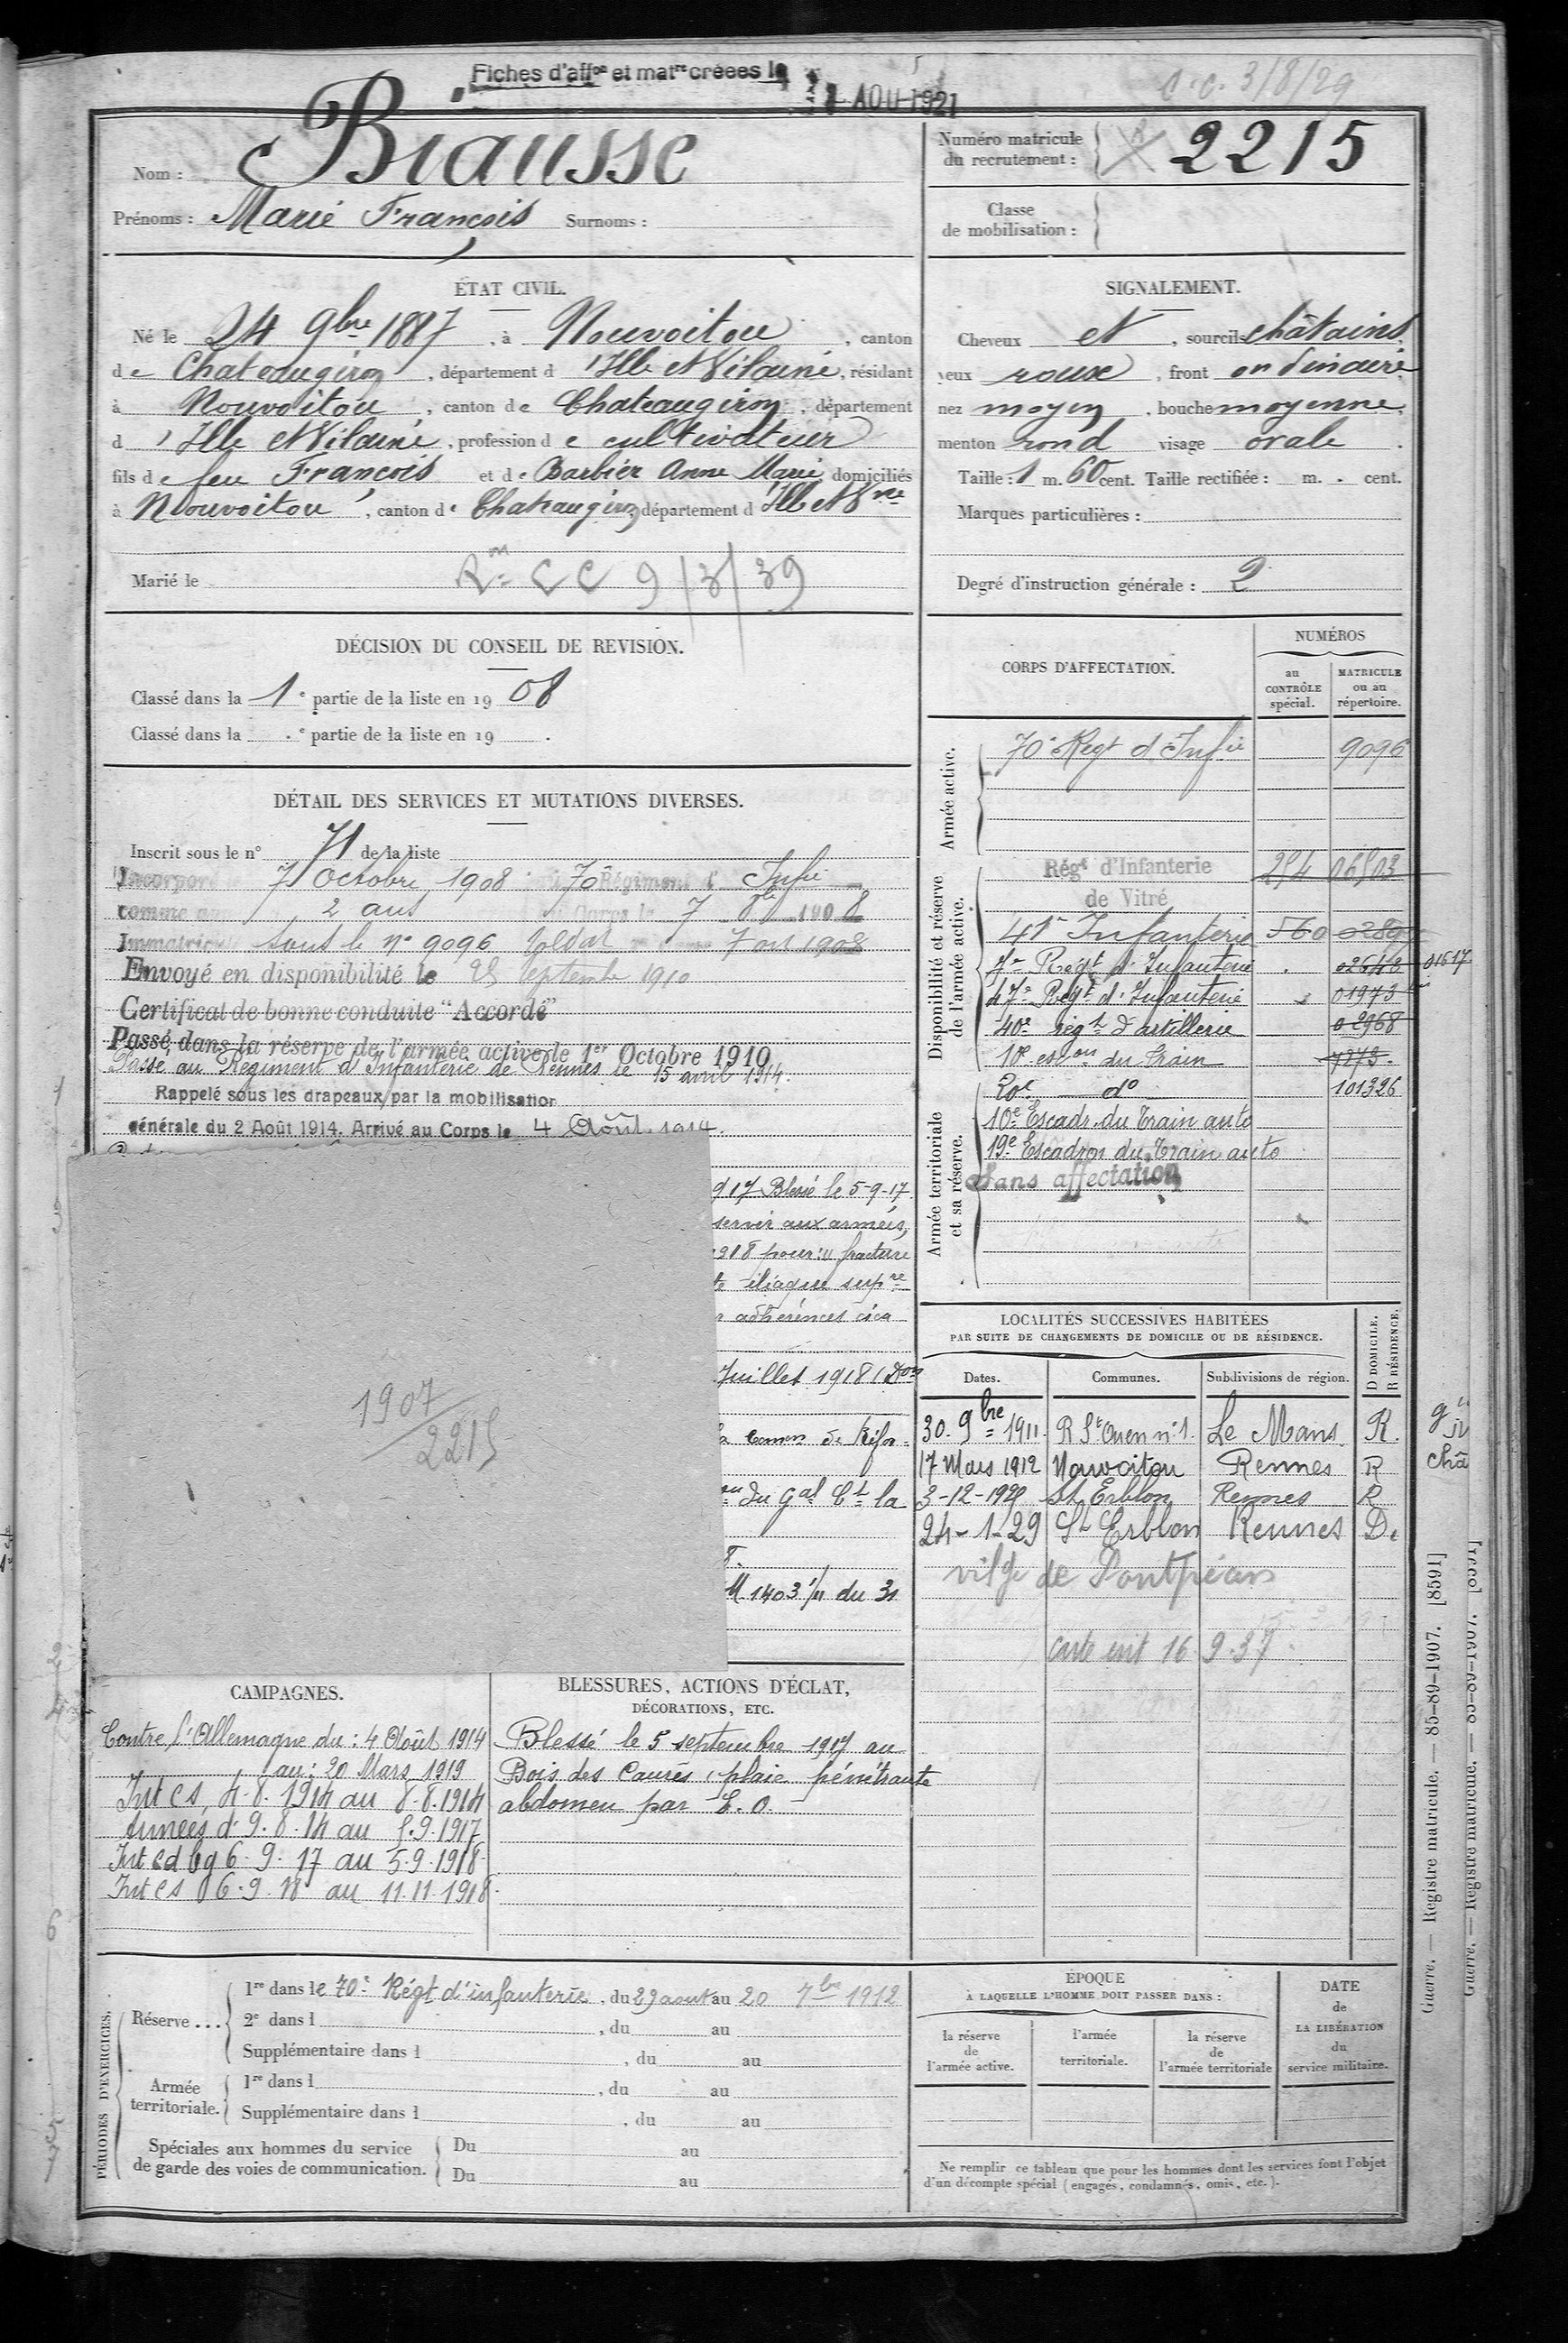 Fiches d'aff^on et mat^re créees le
AOU 1921
C.C. 3/8/29
Nom : Biausse
Prénoms : Marie François Surnoms :
Numéro matricule
du recrutement : 2215
Classe
de mobilisation :
ÉTAT CIVIL.
Né le 24 9bre 1887, à Nouvoitou, canton
de Chateaugiron, département d'Ille et Vilaine, résidant
à Nouvoitou, canton de Chateaugiron, département
d'Ille et Vilaine, profession de cultivateur
fils de feu François et de Barbier Anne Marie domiciliés
à Nouvoitou, canton de Chateaugiron département d'Ille et Vne
Marié le
Rm CC 9/3/39
SIGNALEMENT.
Cheveux et, sourcils châtains,
yeux roux, front ordinaire
nez moyen, bouche moyenne,
menton rond visage ovale.
Taille : 1 m. 60 cent. Taille rectifiée : m. cent.
Marques particulières :
Degré d'instruction générale : 2
DÉCISION DU CONSEIL DE REVISION.
Classé dans la 1e partie de la liste en 1908
Classé dans la e partie de la liste en 19 .
DÉTAIL DES SERVICES ET MUTATIONS DIVERSES.
Inscrit sous le n° 71 de la liste
Incorporé 7 Octobre 1908 70 Régiment d'Infie
comme 2 ans Corps le 7 8bre 1908
Immatriculé sous le n° 9096 soldat 7 oct 1908
Envoyé en disponibilité le 25 septembre 1910
Certificat de bonne conduite "Accordé"
Passé dans la réserve de l'armée active le 1er Octobre 1910
Passé au Régiment d'Infanterie de Rennes le 15 avril 1914.
Rappelé sous les drapeaux par la mobilisation
générale du 2 Août 1914. Arrivé au Corps le 4 Août 1914.
917 Blessé le 5-9-17
servir aux armées,
918 pour : fracture
iliaque supre
adhérences cica
Juillet 1918 (Don
Comon de Réfor-
du Gal Ct la
8.
M. 1403 1/11 du 31
1907
2215
CORPS D'AFFECTATION.
NUMÉROS
au
CONTRÔLE
spécial.
MATRICULE
ou au
répertoire.
Armée active.
70e Regt d'Infie 9096
Disponibilité et réserve
de l'armée active.
Régt d'Infanterie 254 06503
de Vitré
41e Infanterie 560 0289
7e Regt d'Infanterie 02648 01617
47e Regt d'Infanterie 01973
40e régt d'artillerie 02968
10e eson du train 7273
Armée territoriale
et sa réserve.
20e do 101326
10e Escadr. du Train auto
19e Escadron du Train auto
Sans affectation
LOCALITÉS SUCCESSIVES HABITÉES
PAR SUITE DE CHANGEMENTS DE DOMICILE OU DE RÉSIDENCE.
D DOMICILE.
R RÉSIDENCE.
Dates. Communes. Subdivisions de région.
30. 9bre 1911. R St Ouen n° 1. Le Mans R.
17 Mars 1912 Nouvoitou Rennes R
St Erblon Rennes R
24-1-29 St Erblon Rennes D.
vilge de Pontpéan
16 9.37.
CAMPAGNES.
Contre l'Allemagne du : 4 Août 1914
au : 20 Mars 1919
Int CS, 4.8.1914 au 8.8.1914
Armées d. 9.8.14 au 5.9.1917
Int cd bg 6.9.17 au 5.9.1918
Int CS 6.9.18 au 11.11.1918
BLESSURES, ACTIONS D'ÉCLAT,
DÉCORATIONS, ETC.
Blessé le 5 septembre 1917 au
Bois des Caures, plaie pénétrante
abdomen par E.O.
PÉRIODES D'EXERCICES.
Réserve ...
1re dans le 70e Régt d'infanterie, du 29 aout au 20 7bre 1912
2e dans l , du au
Supplémentaire dans l , du au
Armée
territoriale.
1re dans l , du au
Supplémentaire dans l , du au
Spéciales aux hommes du service
de garde des voies de communication.
Du au
Du au
ÉPOQUE
À LAQUELLE L'HOMME DOIT PASSER DANS :
la réserve
de
l'armée active.
l'armée
territoriale.
la réserve
de
l'armée territoriale
DATE
de
LA LIBÉRATION
du
service militaire.
Ne remplir ce tableau que pour les hommes dont les services font l'objet
d'un décompte spécial (engagés, condamnés, omis, etc.).
Guerre. — Registre matricule. — 85-89-1907. [8591]
Guerre. — Registre matricule. — 85-89-1907.